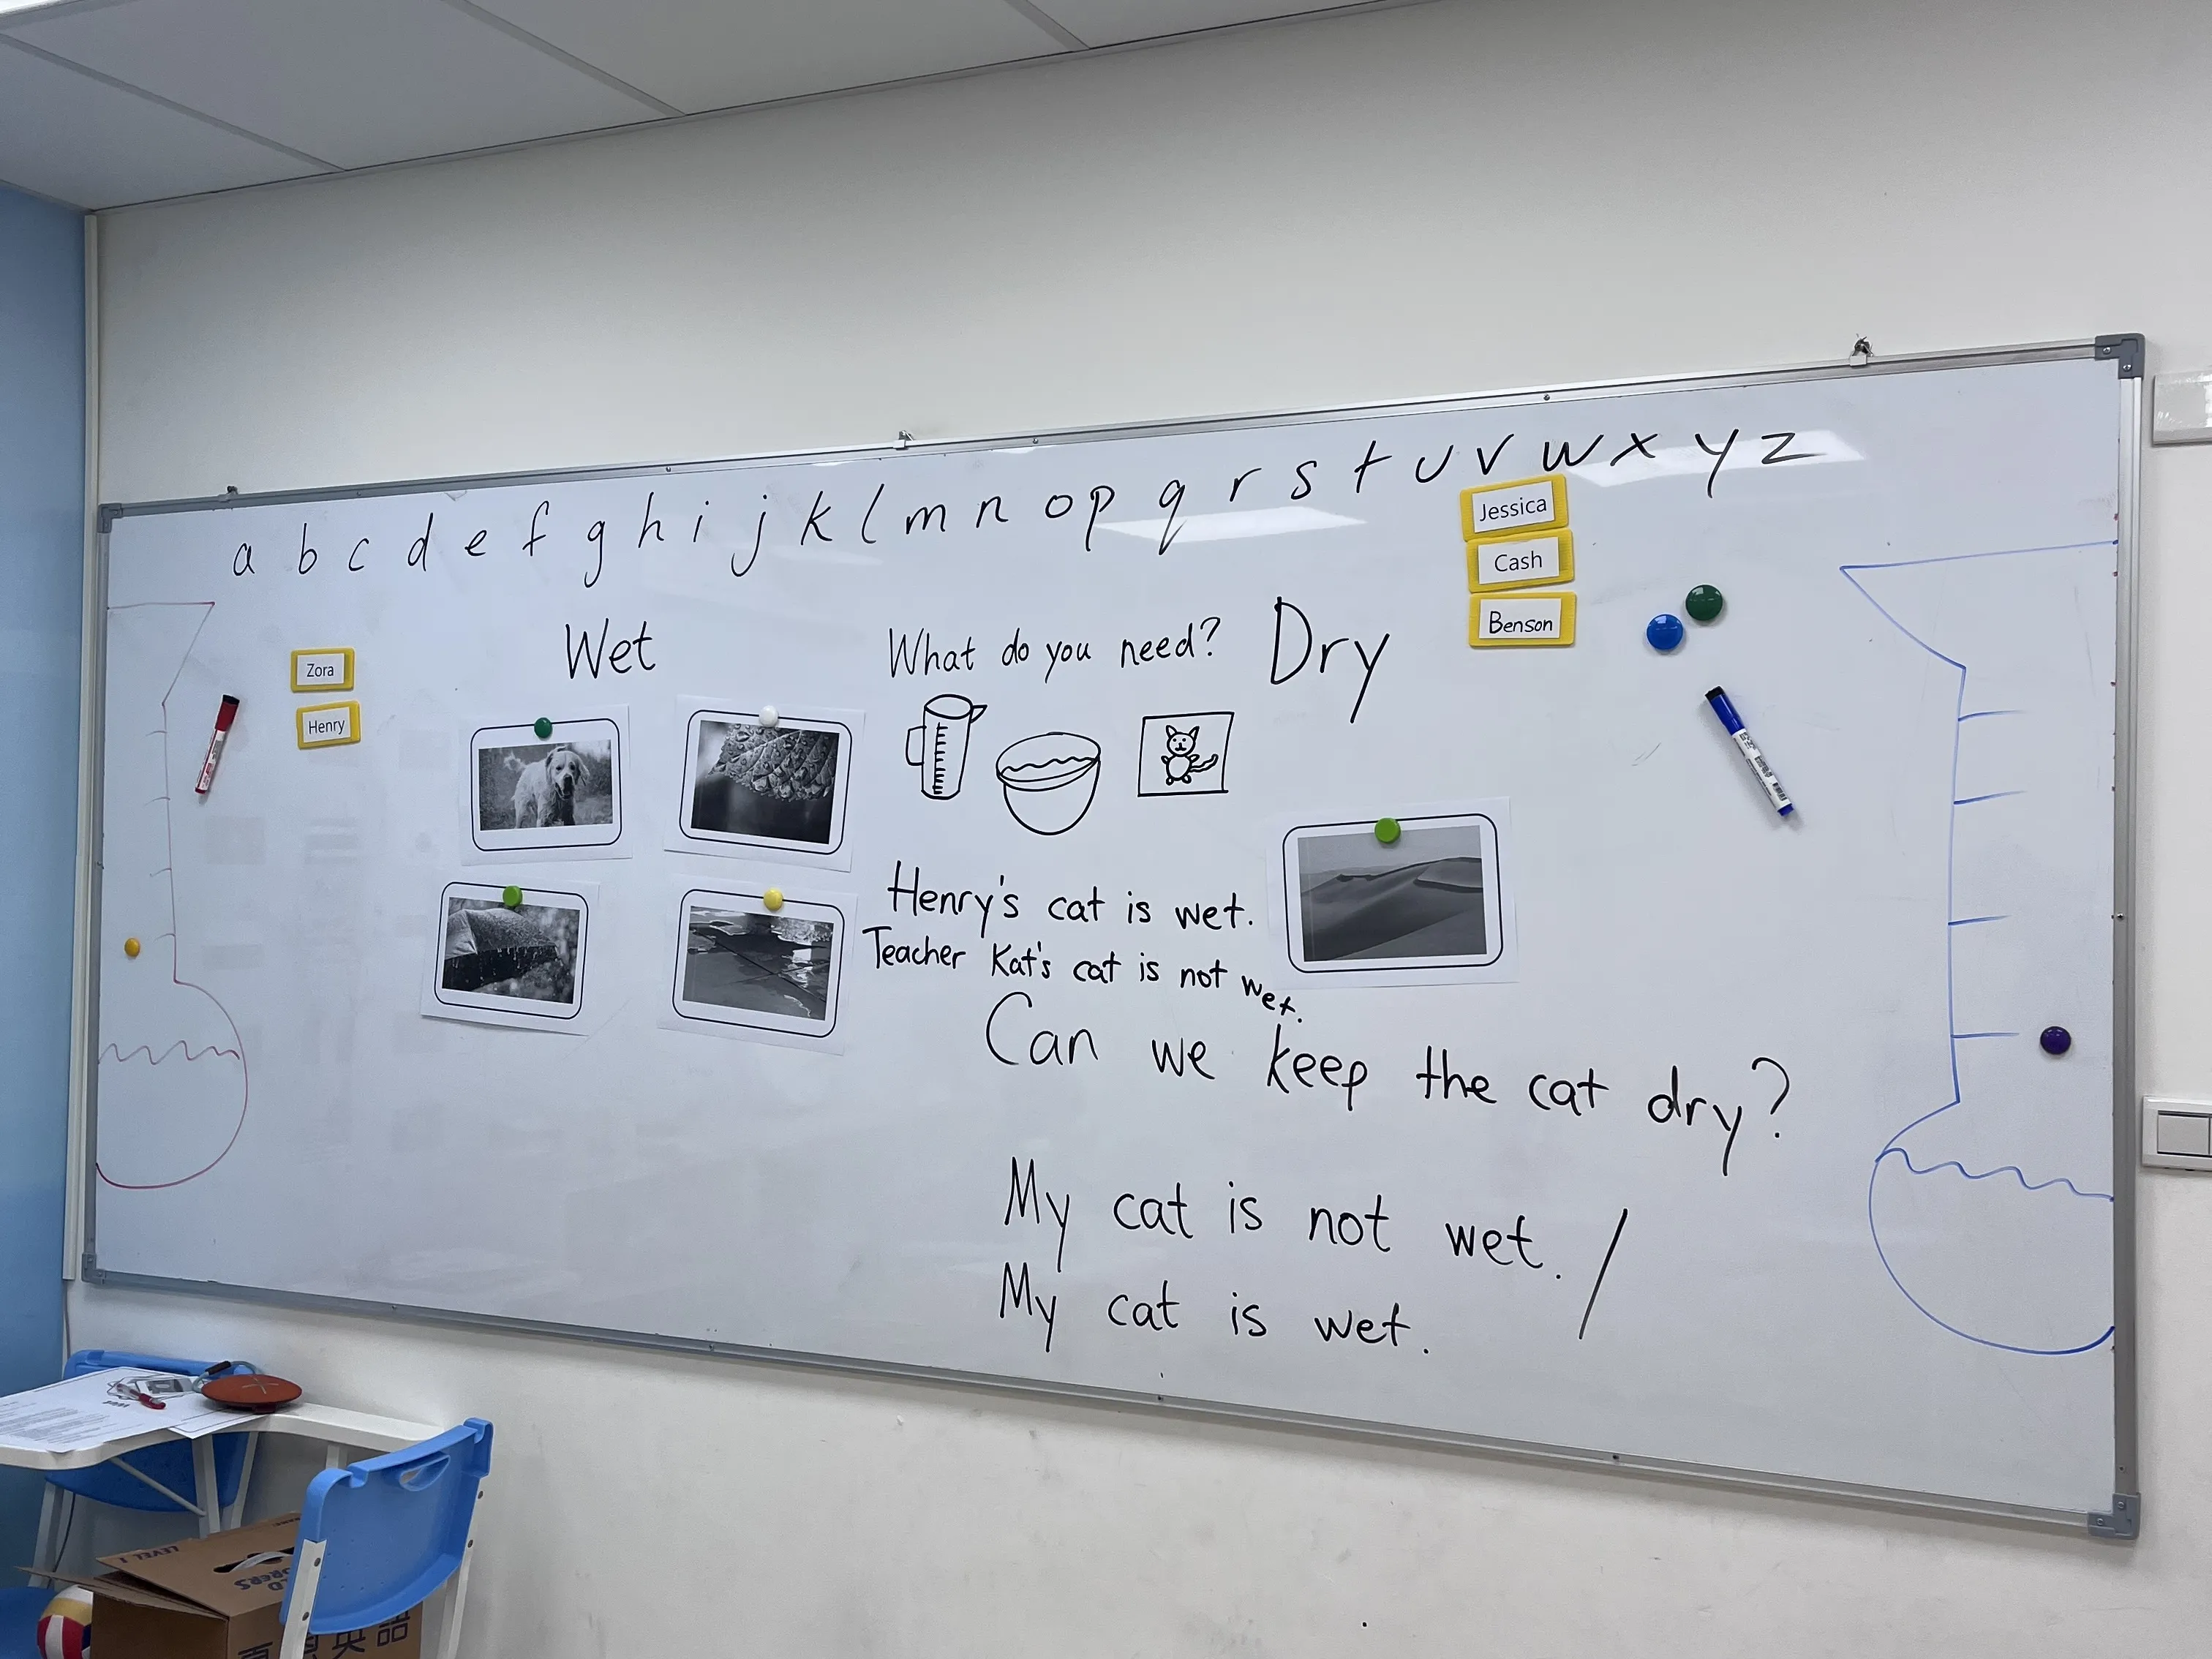 a b c d e f g h i j k l m n o p q r s t u v w x y z
Jessica
Cash
Benson
Zora
Henry
Wet
What do you need?
Dry
Henry's cat is wet.
Teacher Kat's cat is not wet.
Can we keep the cat dry?
My cat is not wet. /
My cat is wet.
LEVEL 1